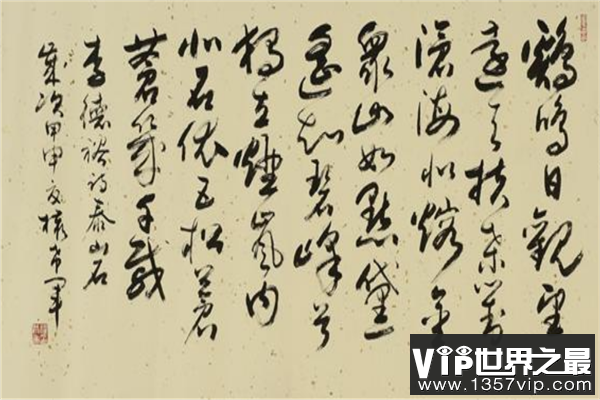 鷄鳴日觀望
遠与扶桑對
滄海似熔金
衆山如點黛
遥知碧峰首
獨立煙嵐内
此石依五松蒼
蒼幾千載
李德裕詩泰山石
歲次甲申
VIP世界之最
www.1357vip.com